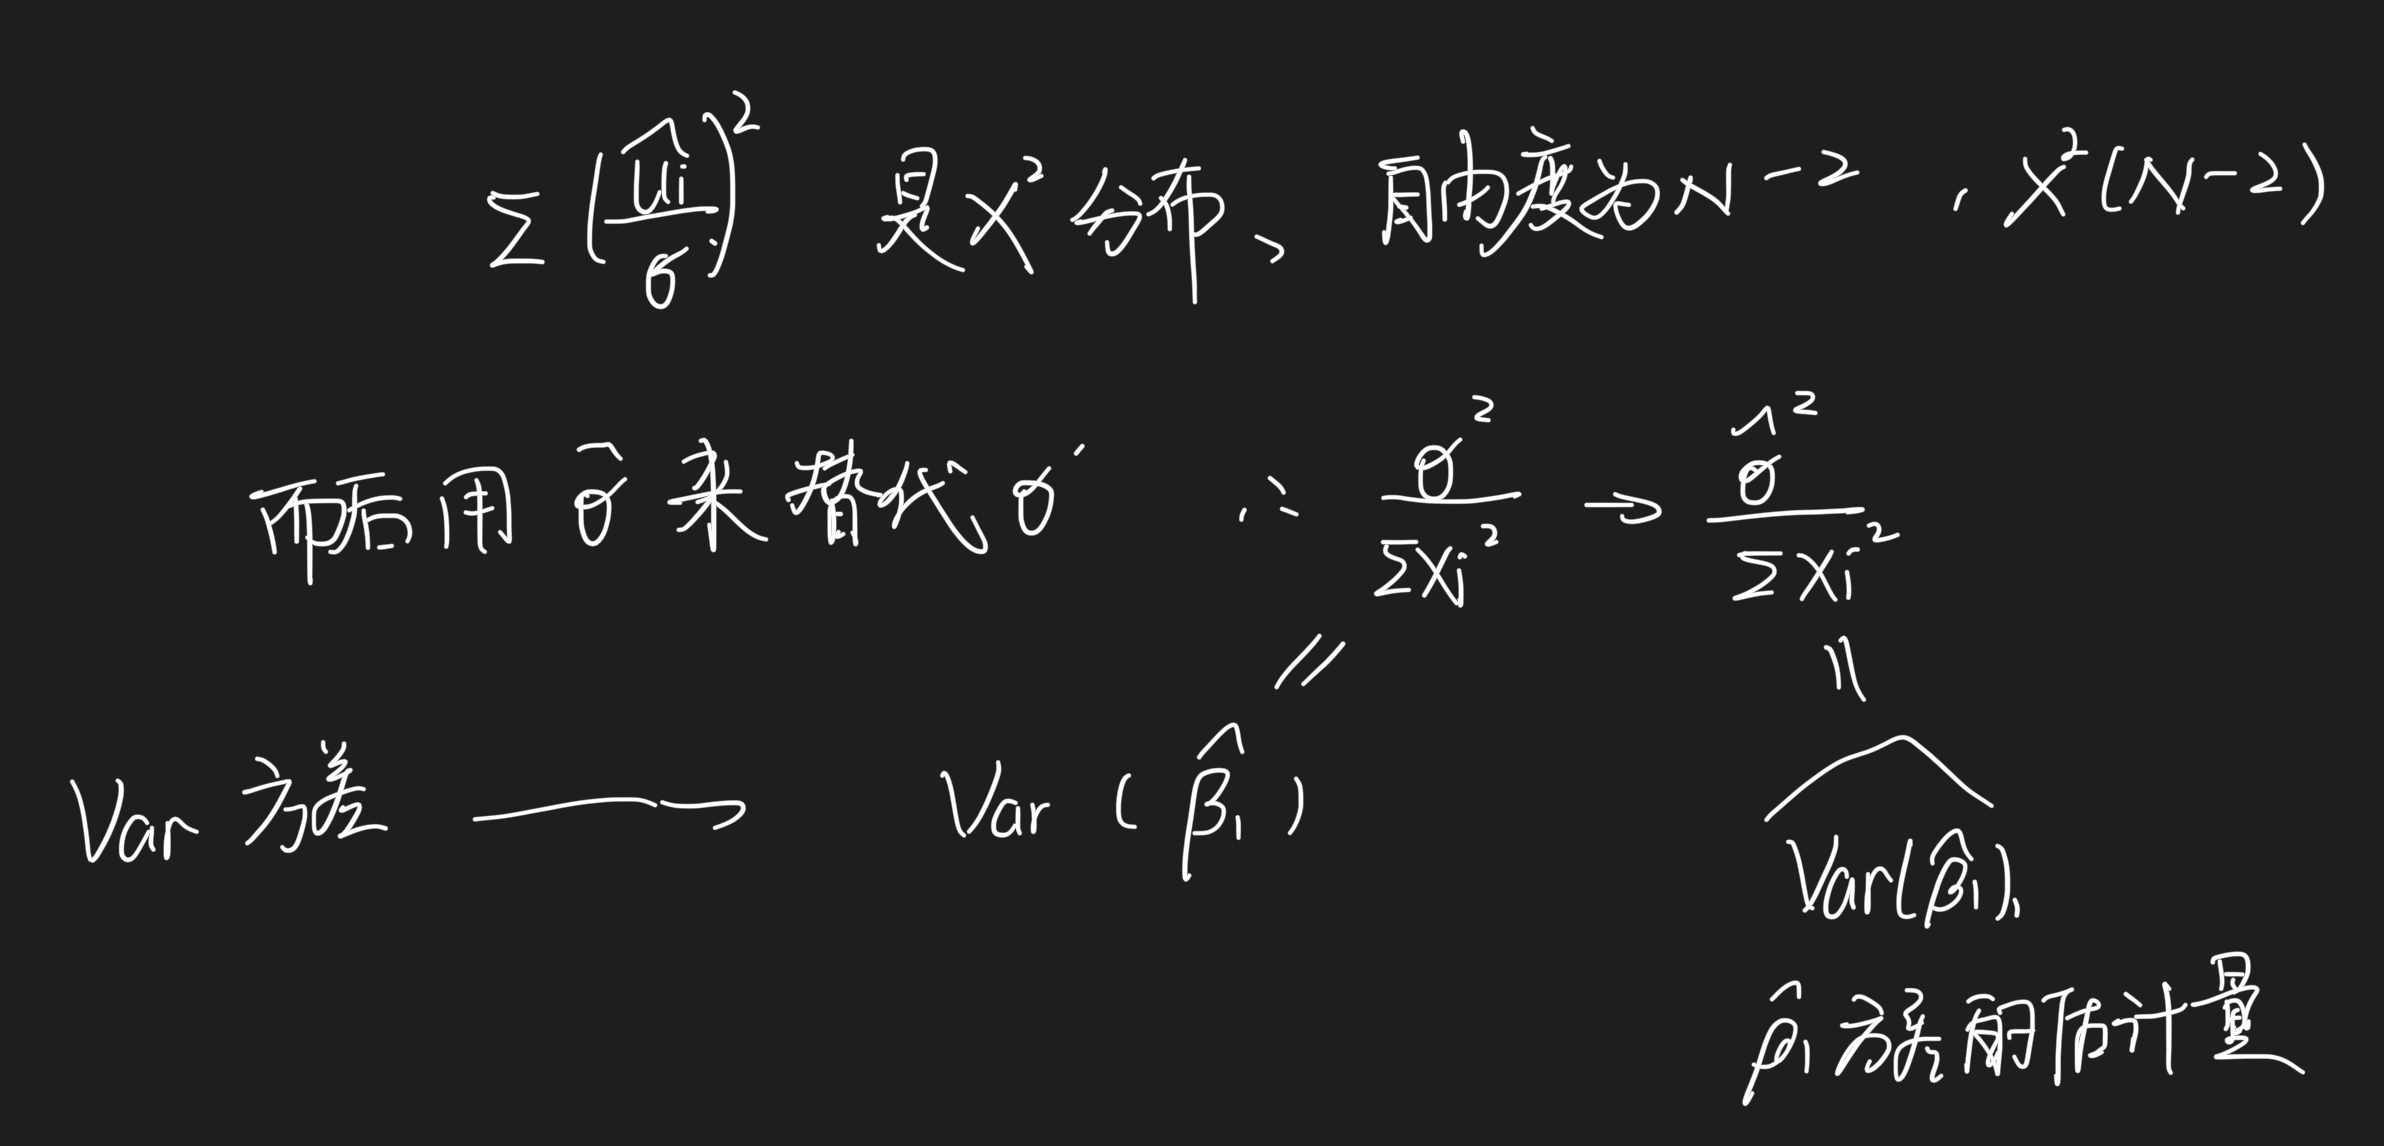 Σ(û_i/σ)² 是χ²分布、自由度为N-2, χ²(N-2)
而后用 σ̂ 来替代 σ ∴ σ²/Σx_i² → σ̂²/Σx_i²
// ||
Var 方差 → Var(β̂₁) \widehat{Var(β̂₁)},
β̂₁方差的估计量